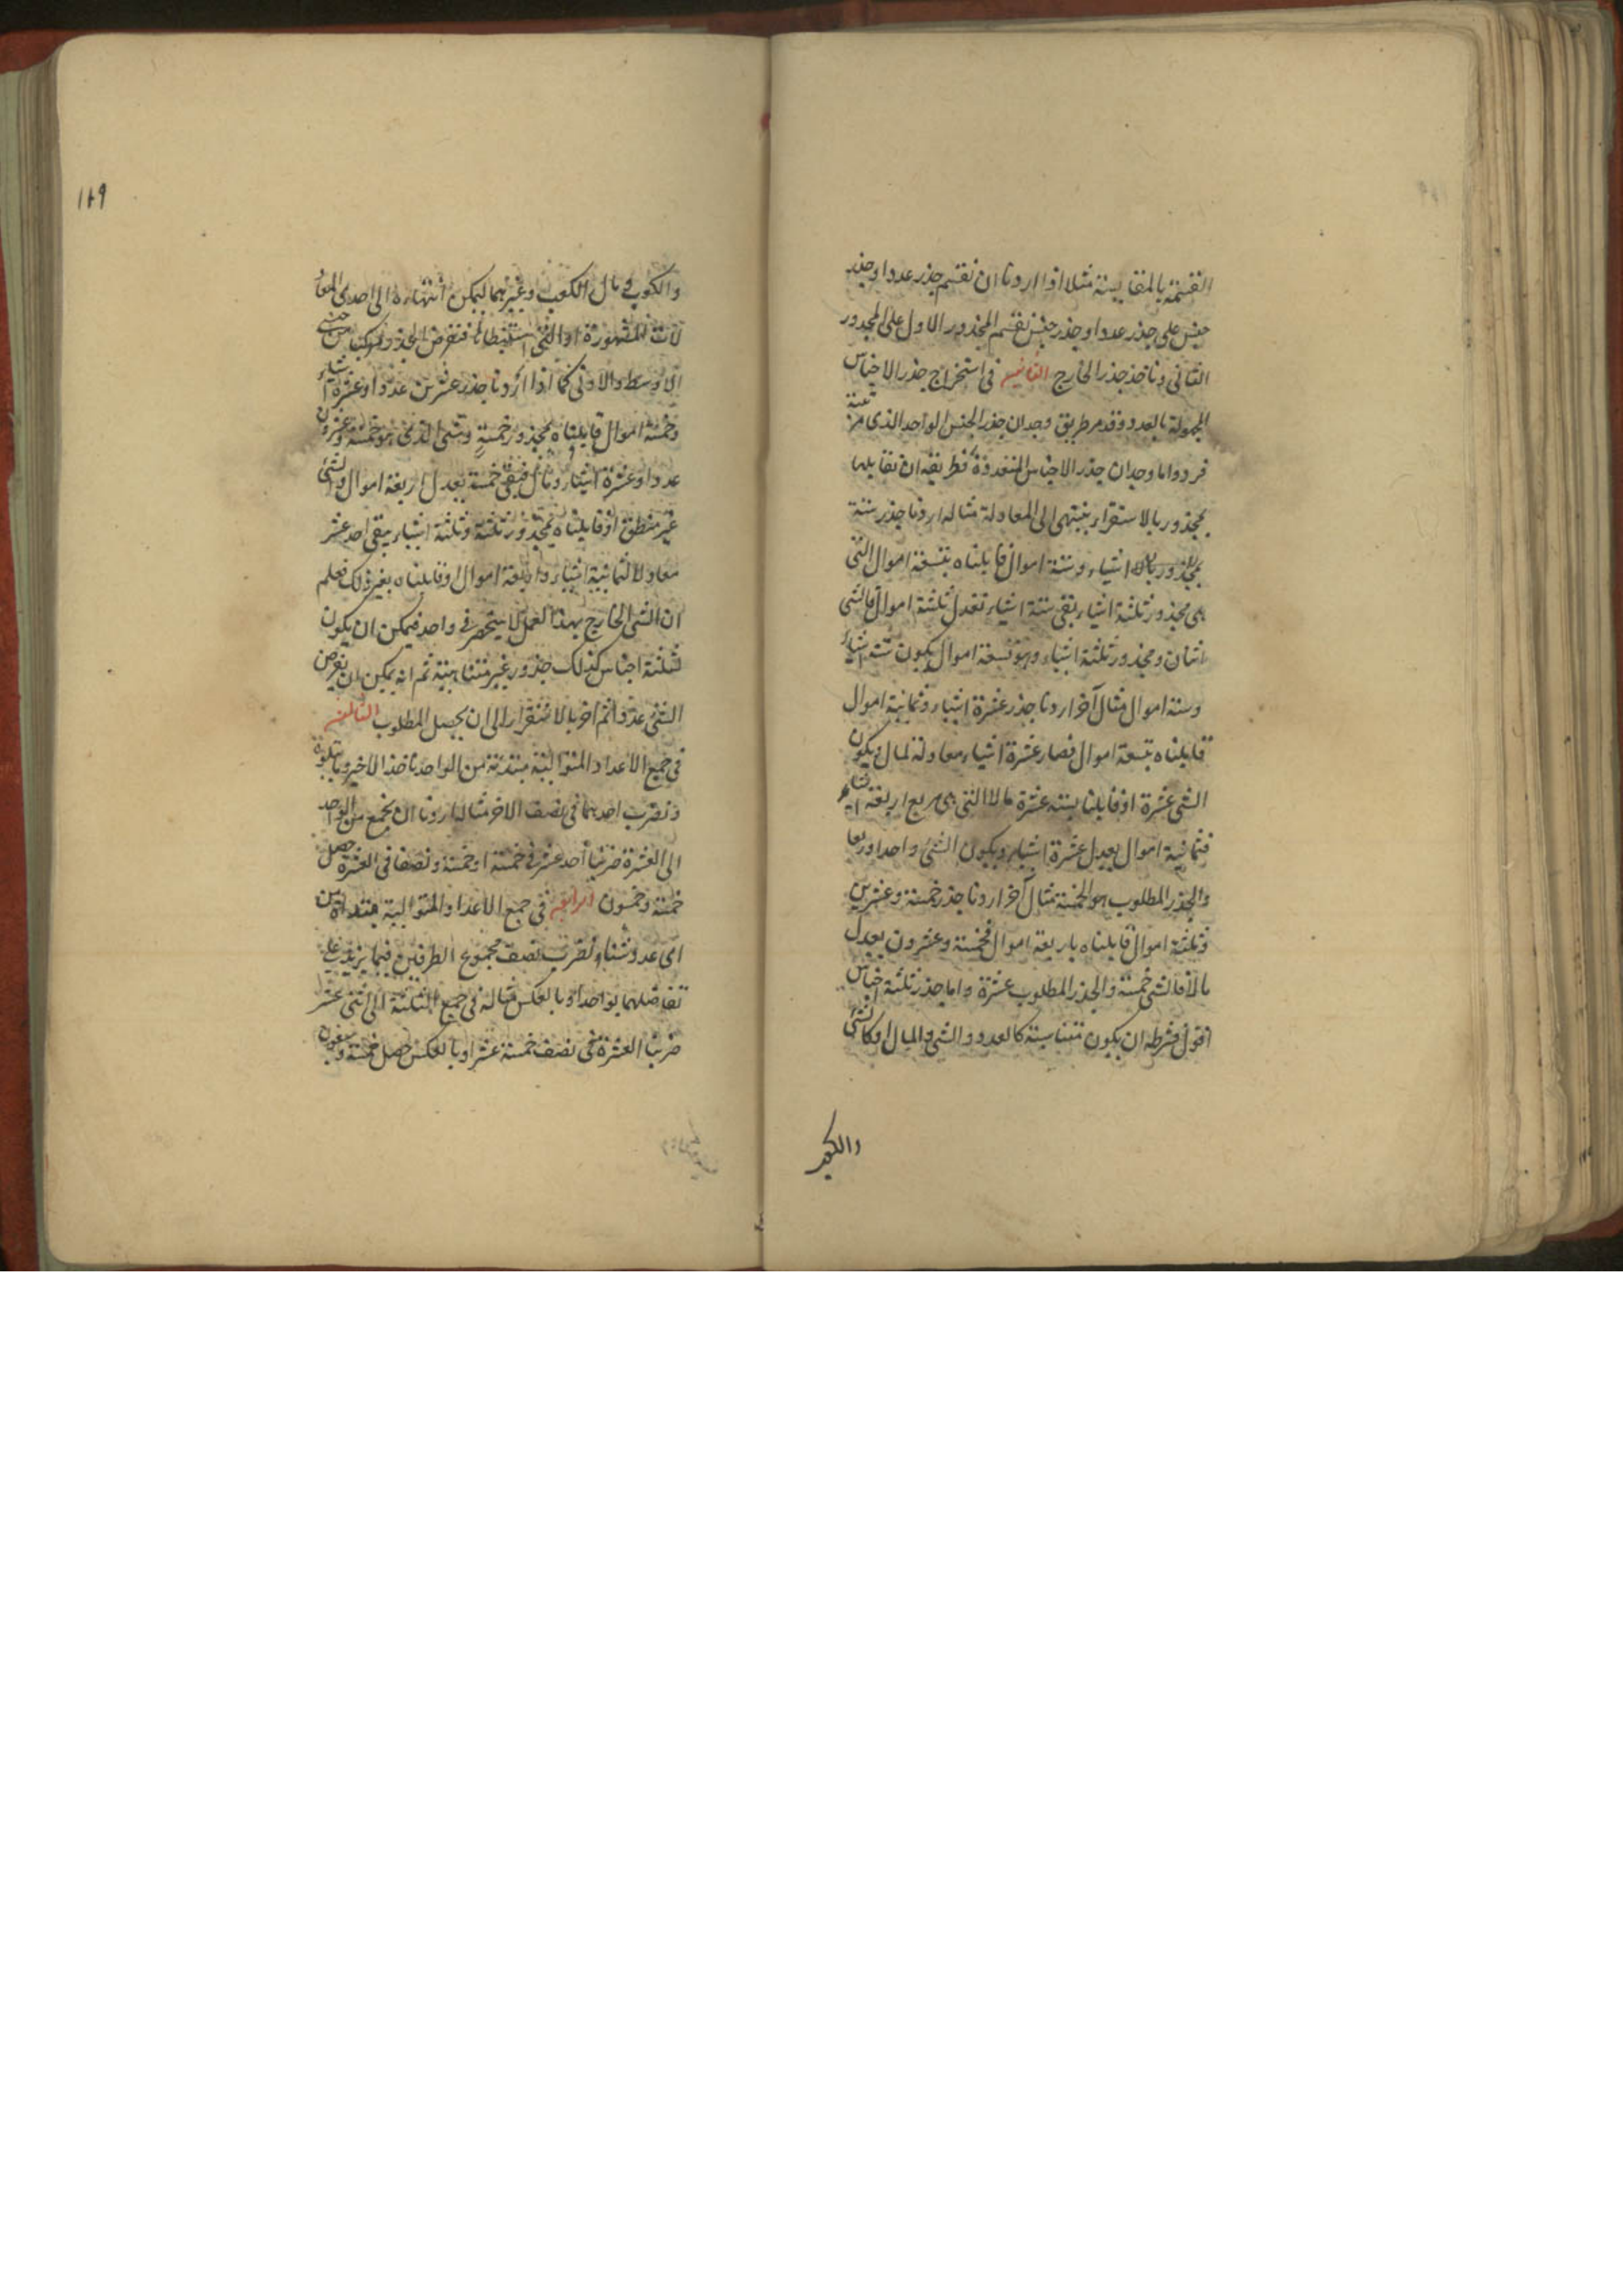 القسمة بالمقايسة مثلا اذا اردنا ان نقسم جذر عدد او جذر
جنس على جذر عدد او جذر جنس نقسم المجذور الاول على المجذور
الثانى وناخذ جذر الخارج الثانيه فى استخراج جذر الاجناس
المجهولة بالعدد وقد مر طريق وجدان جذر الجنس الواحد الذى مرتبته
فرد واما وجدان جذر الاجناس المتعددة فطريقه ان نقابلها
بمجذور بالاستقراء ينتهى الى المعادلة مثاله اردنا جذر ستة
اشياء وستة اموال قابلناه بتسعة اموال التى
هى مجذور ثلثة اشياء بقى ستة اشياء تعدل ثلثة اموال فالشى
اثنان ومجذور ثلثة اشياء وهو تسعة اموال يكون ستة اشياء
وستة اموال مثال آخر اردنا جذر عشرة اشياء وثمانية اموال
قابلناه بتسعة اموال فصار عشرة اشياء معادلة لمال ويكون
الشى عشرة او قابلنا بستة عشرة مالا التى هى مربع اربعة اشياء
فثمانية اموال يعدل عشرة اشياء ويكون الشئ واحدا وربعا
والجذر المطلوب هو الخمسة مثال آخر اردنا جذر خمسة وعشرين
وثلثة اموال قابلناه باربعة اموال فخمسة وعشرون يعدل
مالا فالشى خمسة والجذر المطلوب عشرة واما جذر ثلثة اجناس
اقول فشرطه ان يكون متناسبة كالعدد والشى والمال او كالشى
والكعب
١٨٩
والكعوب ومال الكعب وغيرهما ليمكن انتهاؤه الى احدى المعاد
لات المشهورة او التى استنبطناها فنفرض المجذور مركبا من جنسى
الاوسط والادنى كما اذا اردنا جذر عشرين عددا وعشرة اشياء
وخمسة اموال قابلناه بمجذور خمسة وشى الذى هو خمسة وعشرون
عددا وعشرة اشياء ومال فبقى خمسة يعدل اربعة اموال والشى
غير منطق او قابلناه بمجذور ثلثة وثلثة اشياء يبقى احد عشر
معادلا لثمانية اشياء واربعة اموال او قابلناه بغير ذلك فعلم
ان الشى الخارج بهذا العمل لا ينحصر فى واحد فيمكن ان يكون
لثلثة اجناس كذلك جذور غير متناهية ثم انه يمكن ان يفرض
الشئ عددا ثم اخر بالاستقراء الى ان يحصل المطلوب الثالثه
فى جمع الاعداد المتوالية مبتدئة من الواحد ناخذ الاخير وما يتلوه
ونضرب احدهما فى نصف الاخر مثاله اردنا ان نجمع من الواحد
الى العشرة ضربنا احد عشر فى خمسة او خمسة ونصفا فى العشرة حصل
خمسة وخمسون الرابعه فى جمع الاعداد المتوالية مبتدأة من
اى عدد شئنا نضرب نصف مجموع الطرفين فيما يزيد على
تفاضلهما بواحد او بالعكس مثاله فى جمع الثلثة الى اثنى عشر
ضربنا العشرة فى نصف خمسة عشر او بالعكس حصل خمسة وسبعون